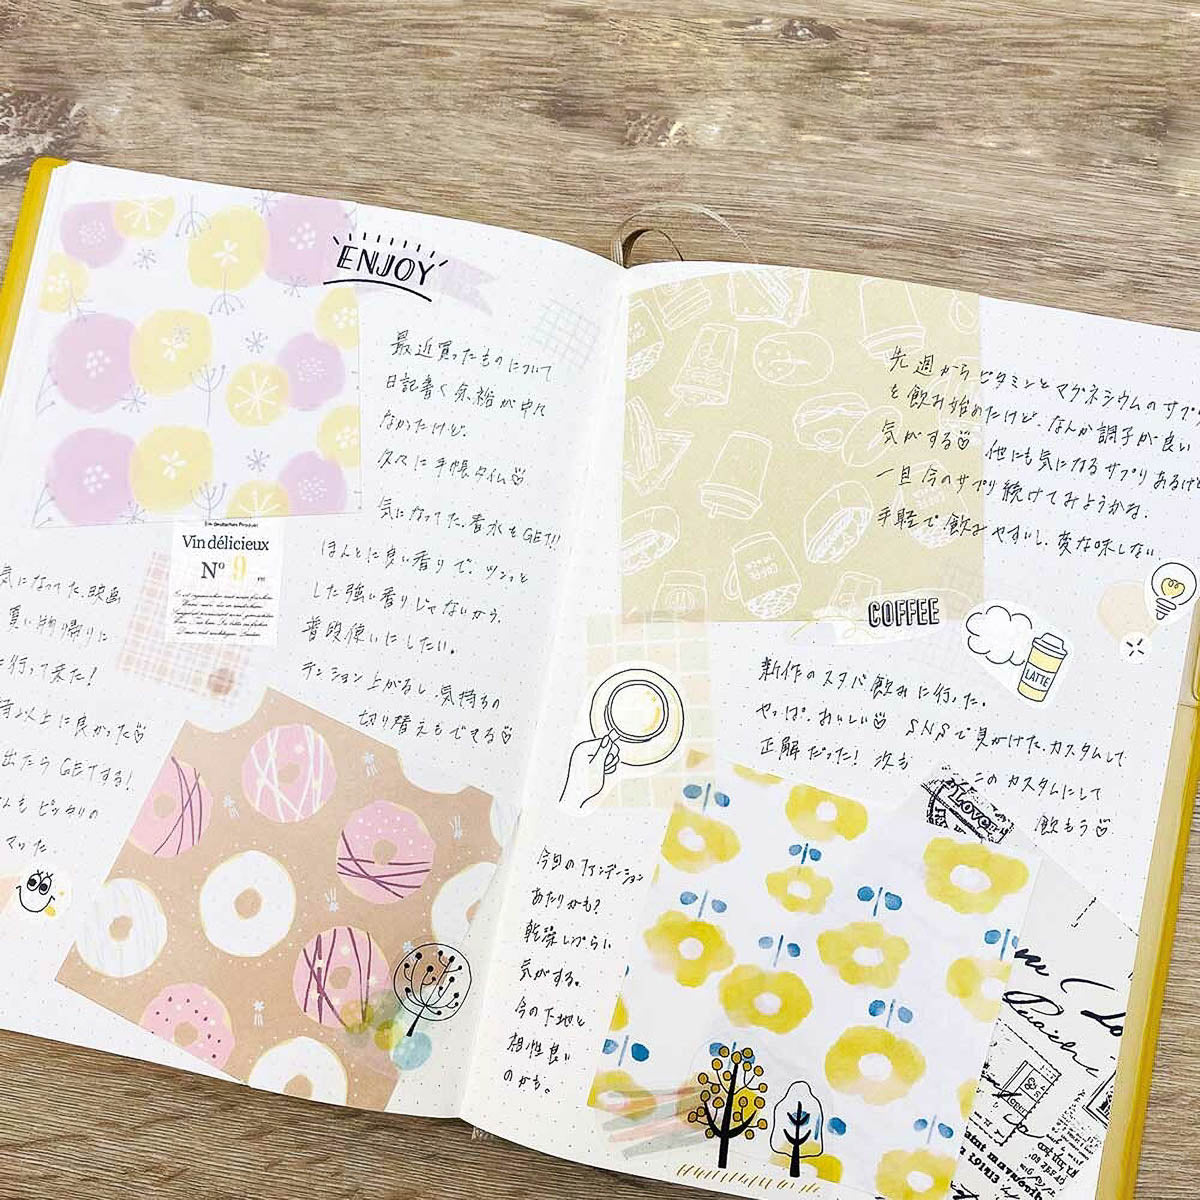 ENJOY
最近買ったものについて
日記書く余裕が中々
なかったけど、
久々に手帳タイム♡
気になってた香水もGET!!
ほんとに良い香りで、ツンと
した強い香りじゃないから、
普段使いにしたい。
テンション上がるし、気持ちの
切り替えもできる♡
Ein deutsches Produkt
Vin délicieux
Nº 9
気になってた映画
買い物帰りに
行って来た!
以上に良かった♡
出たらGETする!
もピッタリの
マッた
先週からビタミンとマグネシウムのサプ
を飲み始めたけど、なんか調子が良い
気がする♡ 他にも気になるサプリあるけど
一旦今のサプリ続けてみようかな。
手軽で飲みやすいし、変な味しない。
COFFEE
COFFEE
LATTE
新作のスタバ飲みに行った。
やっぱ、おいしい♡ SNSで見かけたカスタムして
正解だった! 次も このカスタムにして
飲もう♡
Love
今日のファンデーション
あたりかも?
乾燥しづらい
気がする。
今の下地と
相性良い
のかも。